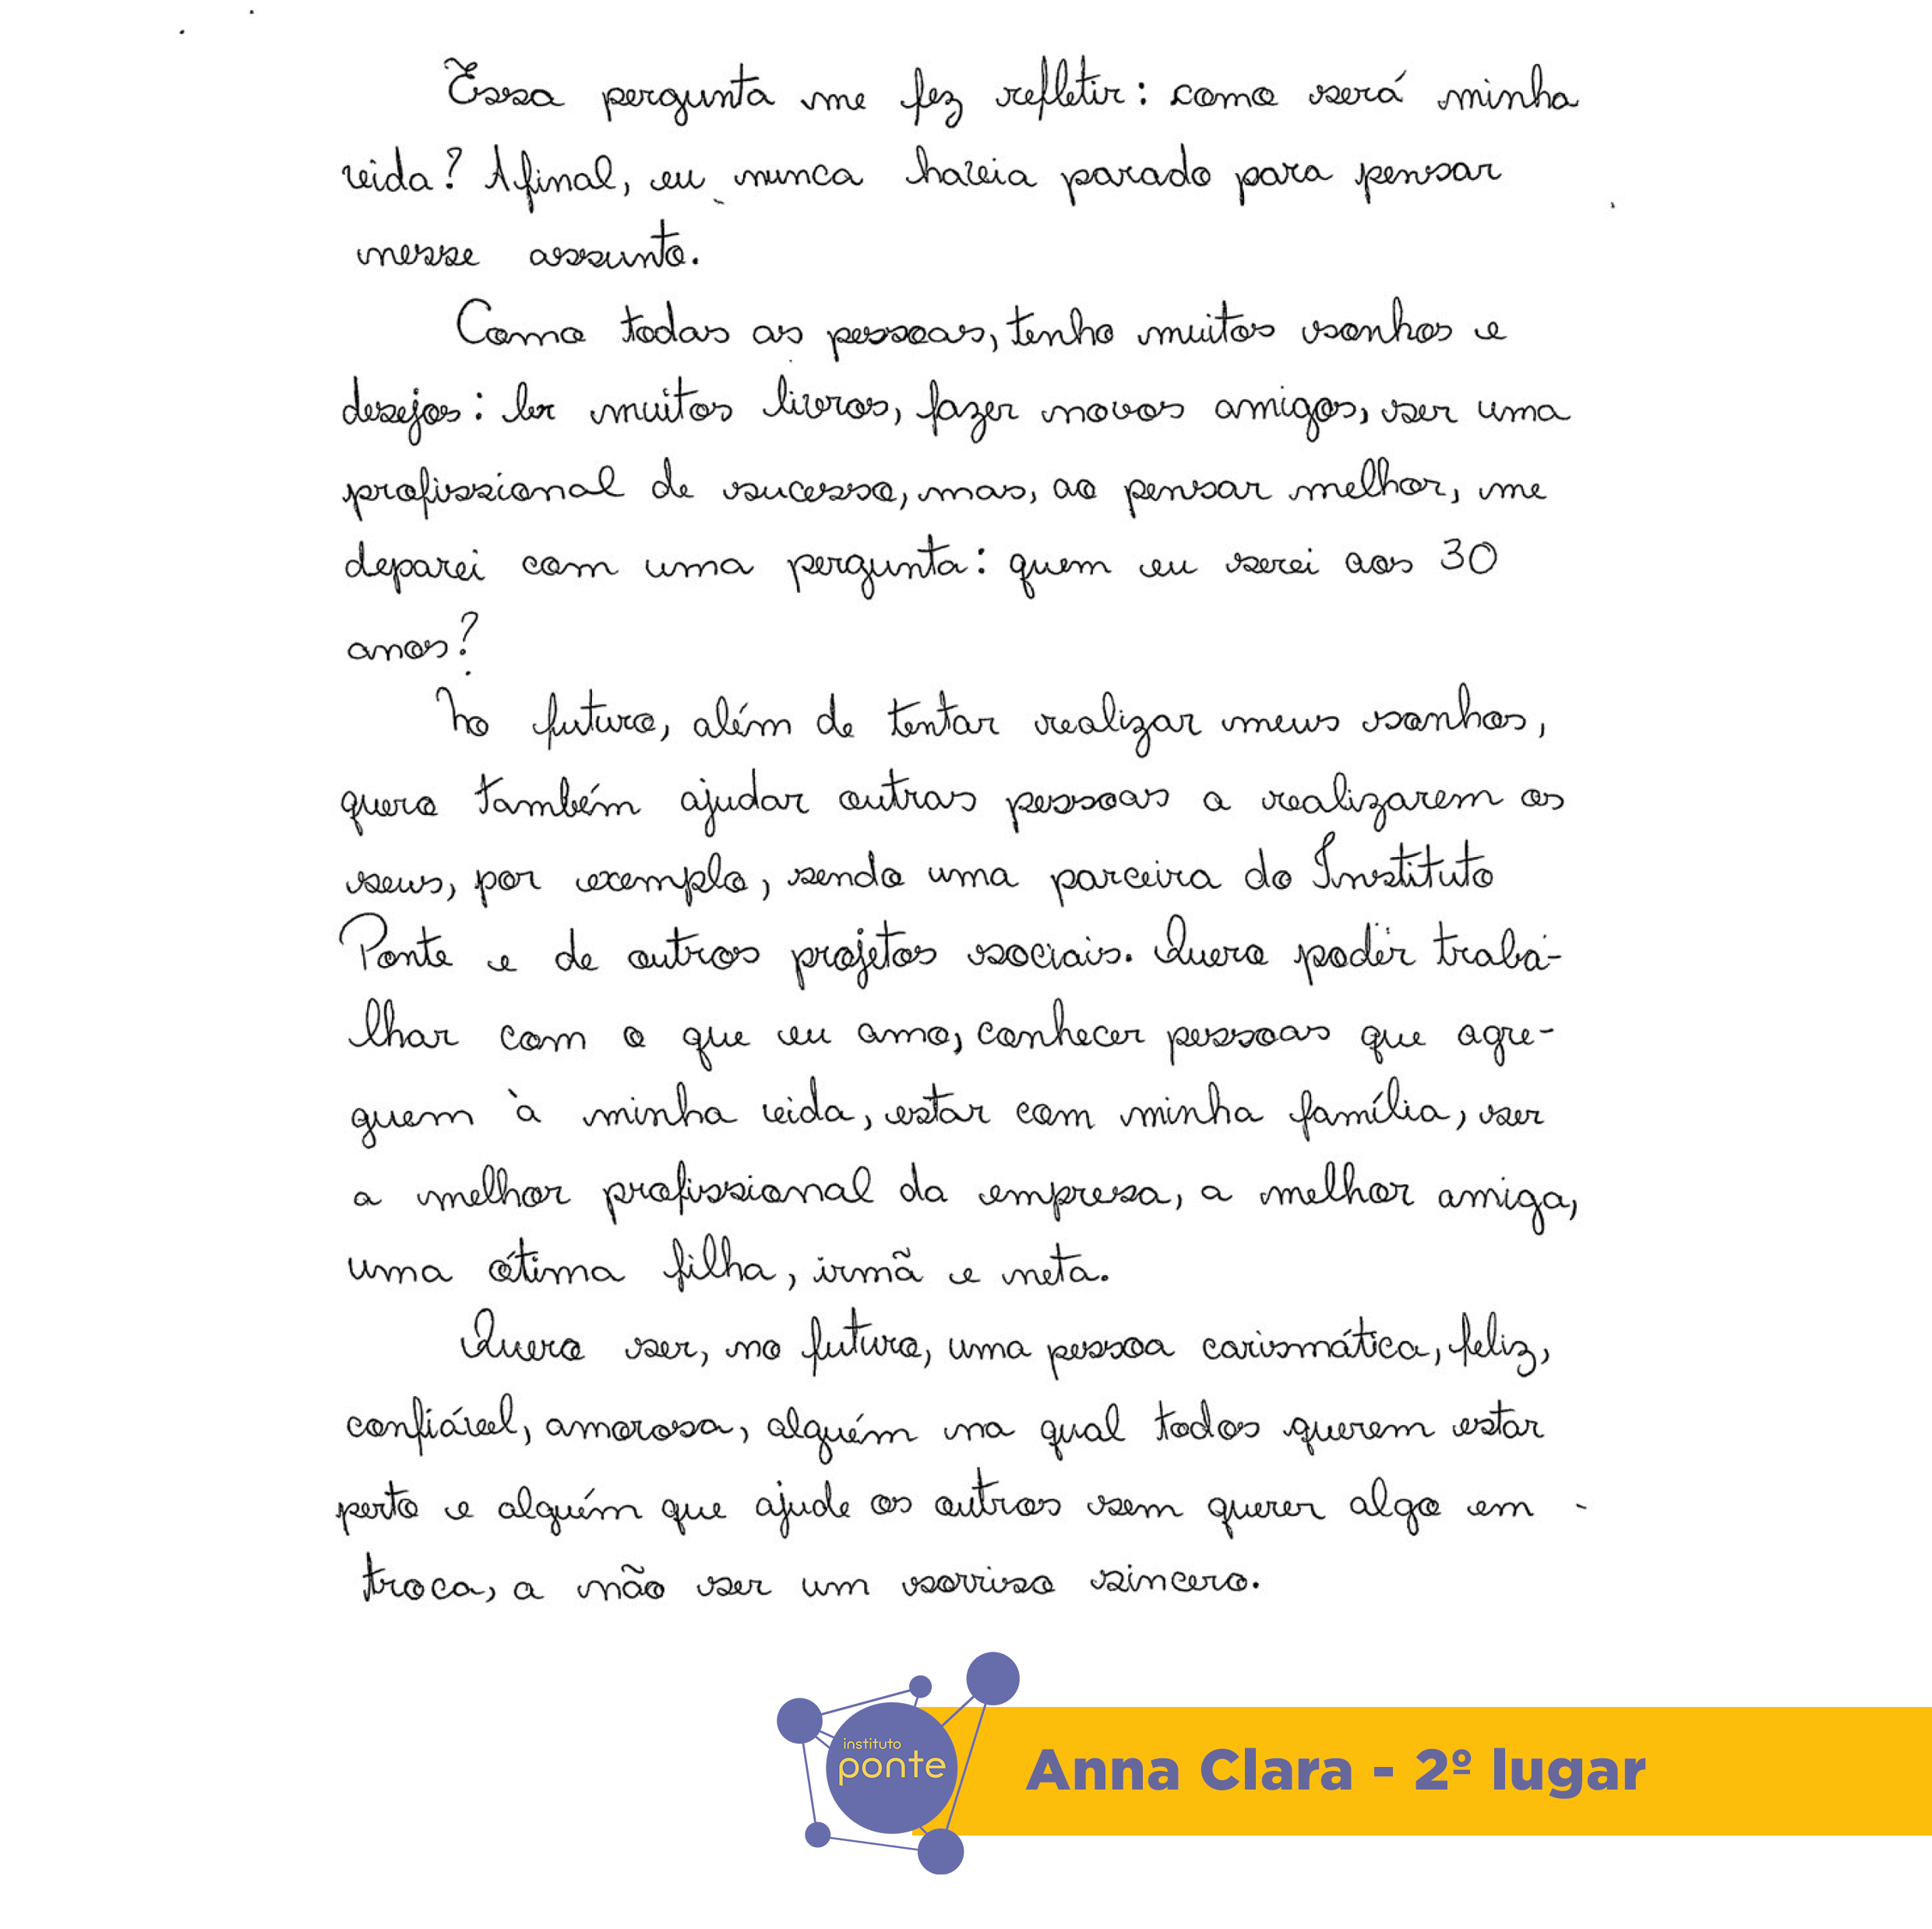 Essa pergunta me fez refletir: como será minha
vida? Afinal, eu nunca havia parado para pensar
nesse assunto.
Como todas as pessoas, tenho muitos sonhos e
desejos: ler muitos livros, fazer novos amigos, ser uma
profissional de sucesso, mas, ao pensar melhor, me
deparei com uma pergunta: quem eu serei aos 30
anos?
No futuro, além de tentar realizar meus sonhos,
quero também ajudar outras pessoas a realizarem os
seus, por exemplo, sendo uma parceira do Instituto
Ponte e de outros projetos sociais. Quero poder traba-
lhar com o que eu amo, conhecer pessoas que agre-
guem à minha vida, estar com minha família, ser
a melhor profissional da empresa, a melhor amiga,
uma ótima filha, irmã e neta.
Quero ser, no futuro, uma pessoa carismática, feliz,
confiável, amorosa, alguém na qual todos querem estar
perto e alguém que ajude os outros sem querer algo em
troca, a não ser um sorriso sincero.
instituto
ponte
Anna Clara - 2º lugar